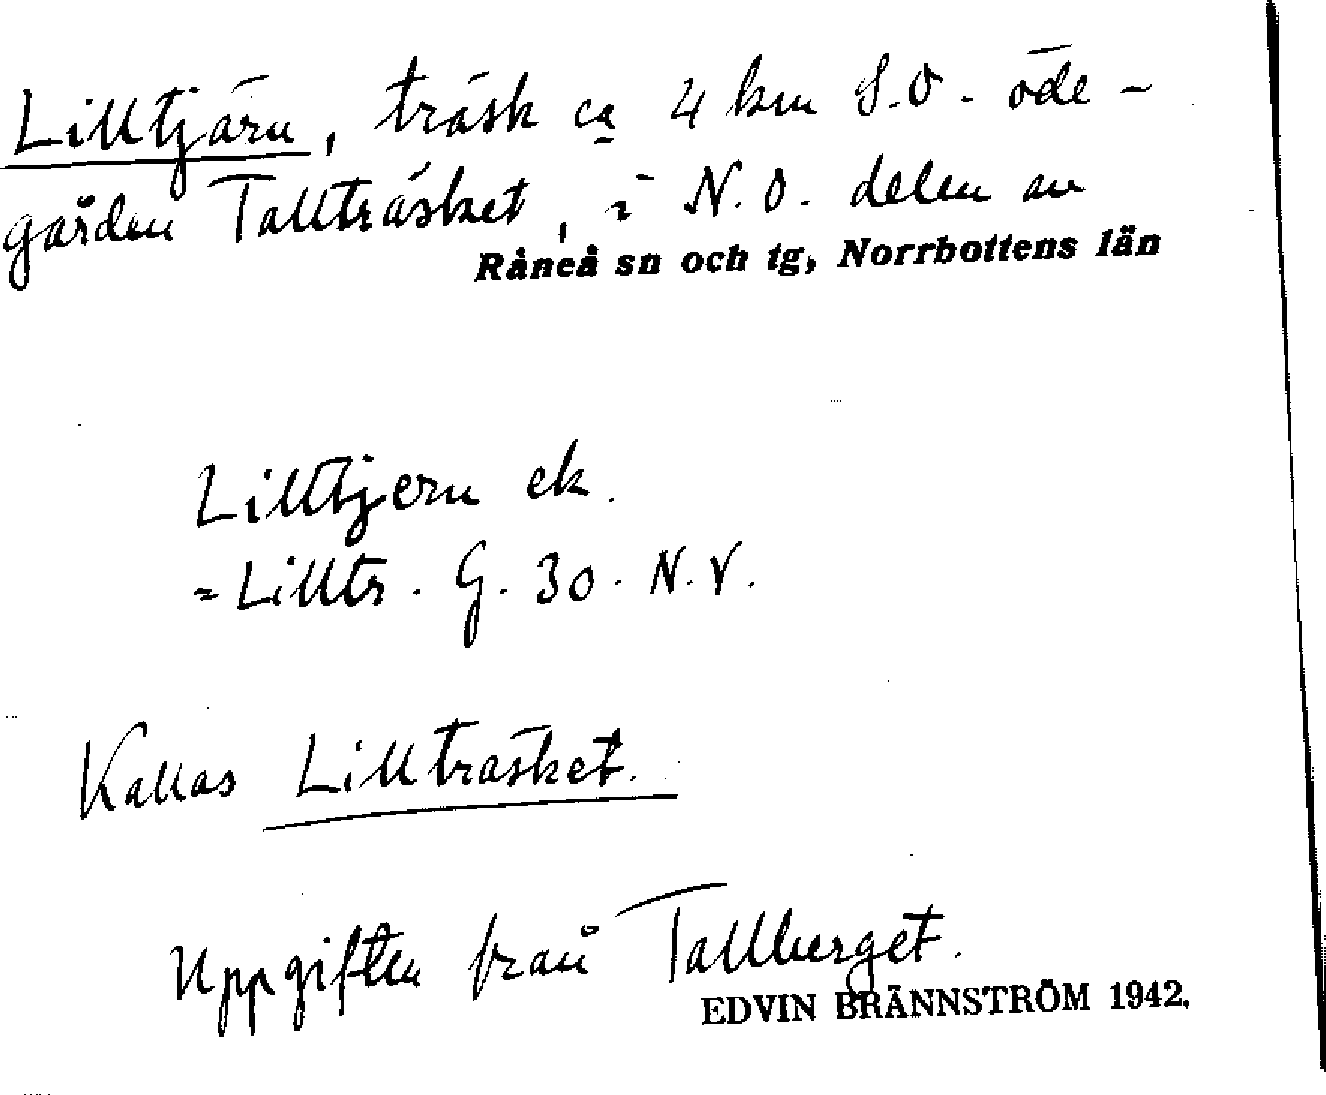 Lilltjärn, träsk ca 4 km S.O. öde-
gården Tallträsket, i N.O. delen av
Råneå sn och tg, Norrbottens län
Lilltjern ek.
= Lilltr. G. 30. N.V.
Kallas Lillträsket.
Uppgiften från Tallberget.
EDVIN BRÄNNSTRÖM 1942.